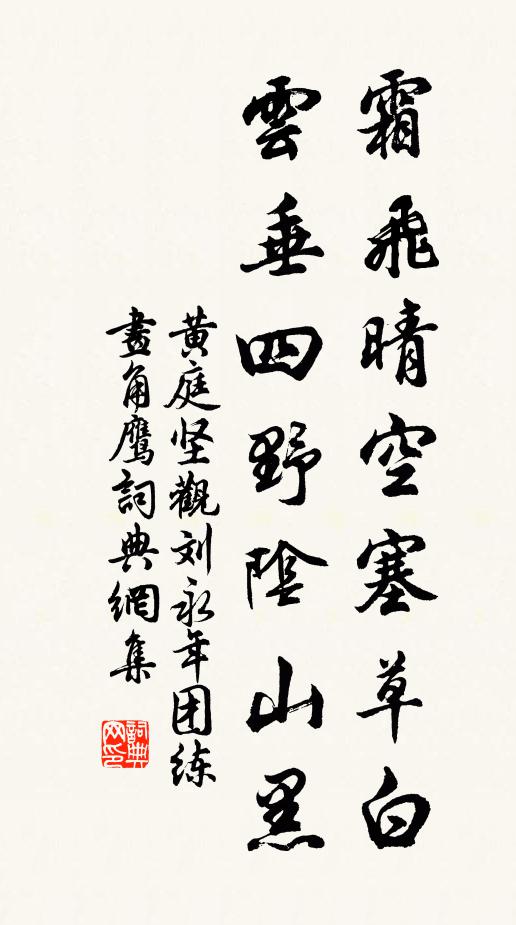 霜飛晴空塞草白
雲垂四野陰山黑
黄庭坚觀刘永年团练
畫角鹰詞典網集
詞典
网印